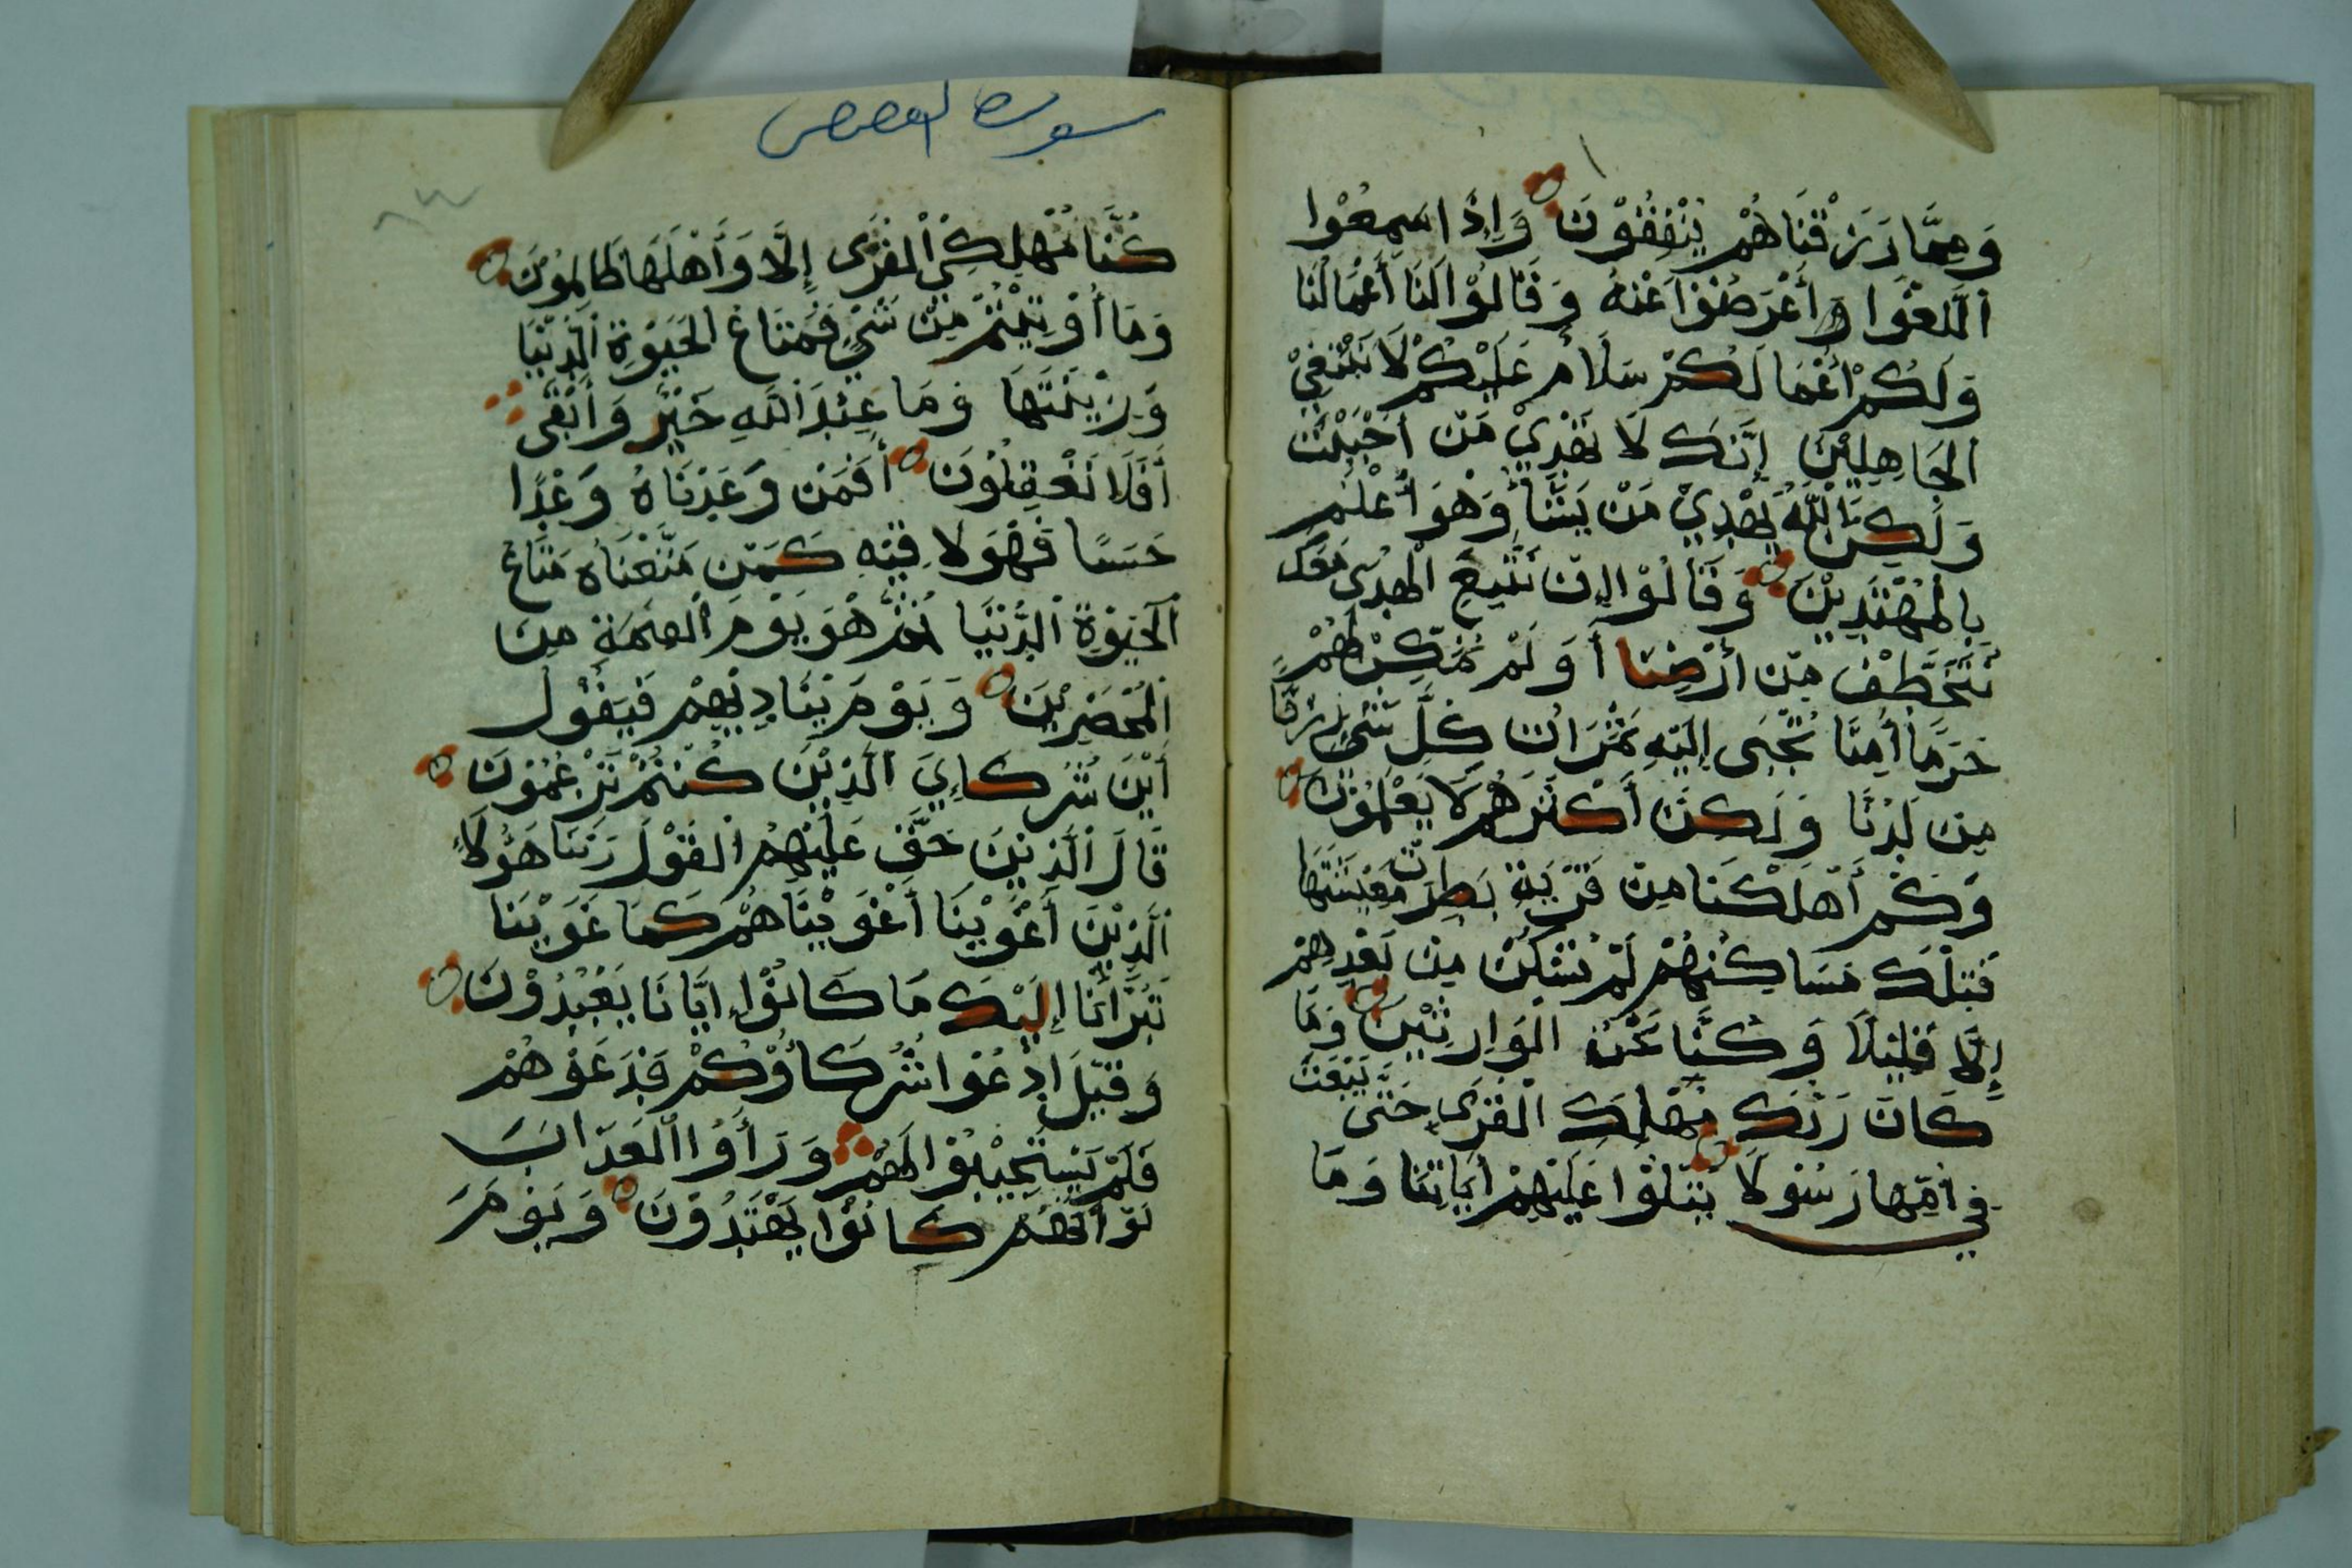 وَمِمَّا رَزَقْنَاهُمْ يُنْفِقُوْنَ وَإِذَا سَمِعُوْا
اللَّغْوَا وَأَعْرَضُوْا عَنْهُ وَقَالُوْا لَنَا أَعْمَالُنَا
وَلَكُمْ أَعْمَالَكُمْ سَلَامٌ عَلَيْكُمْ لَا نَبْتَغِيْ
الْجَاهِلِيْنَ إِنَّكَ لَا تَهْدِيْ مَنْ أَحْبَبْتَ
وَلَكِنَّ اللَّهَ يَهْدِيْ مَنْ يَشَآ وَهْوَ أَعْلَمُ
بِالْمُهْتَدِيْنَ وَقَالُوْا إِنْ نَتَّبِعِ الْهُدَى مَعَكَ
نُتَخَطَّفْ مِنْ أَرْضِنَا أَوَلَمْ نُمَكِّنْ لَهُمْ
حَرَمًا أَمِنًا تُجْبَى إِلَيْهِ ثَمَرَاتُ كُلِّ شَيْءٍ رِزْقًا
مِنْ لَدُنَّا وَلَكِنَّ أَكْثَرَهُمْ لَا يَعْلَمُوْنَ
وَكَمْ أَهْلَكْنَا مِنْ قَرْيَةٍ بَطِرَتْ مَعِيْشَتَهَا
فَتِلْكَ مَسَاكِنُهُمْ لَمْ تُسْكَنْ مِنْ بَعْدِهِمْ
إِلَّا قَلِيْلًا وَكُنَّا نَحْنُ الْوَارِثِيْنَ وَمَا
كَانَ رَبُّكَ مُهْلِكَ الْقُرَى حَتَّى يَبْعَثَ
فِي أُمِّهَا رَسُوْلًا يَتْلُوْا عَلَيْهِمْ أَيَاتِنَا وَمَا
سورة القصص
٨٣
كُنَّا مُهْلِكِي الْقُرَى إِلَّا وَأَهْلَهَا ظَالِمُوْنَ
وَمَا أُوْتِيْتُمْ مِنْ شَيْءٍ فَمَتَاعُ الْحَيَوْةِ الدُّنْيَا
وَزِيْنَتَهَا وَمَا عِنْدَ اللَّهِ خَيْرٌ وَأَبْقَى
أَفَلَا تَعْقِلُوْنَ أَفَمَنْ وَعَدْنَاهُ وَعْدًا
حَسَنًا فَهُوَ لَاقِيْهِ كَمَنْ مَتَّعْنَاهُ مَتَاعَ
الْحَيَوْةِ الدُّنْيَا ثُمَّ هْوَ يَوْمَ الْقِيَمَةِ مِنَ
الْمُحْضَرِيْنَ وَيَوْمَ يُنَادِيْهِمْ فَيَقُوْلُ
أَيْنَ شُرَكَاءِيَ الَّذِيْنَ كُنْتُمْ تَزْعُمُوْنَ
قَالَ الَّذِيْنَ حَقَّ عَلَيْهِمُ الْقَوْلُ رَبَّنَا هَؤُلَاءِ
الَّذِيْنَ أَغْوَيْنَا أَغْوَيْنَاهُمْ كَمَا غَوَيْنَا
تَبَرَّأْنَا إِلَيْكَ مَا كَانُوْا إِيَّانَا يَعْبُدُوْنَ
وَقِيْلَ ادْعُوْا شُرَكَاؤُكُمْ فَدَعَوْهُمْ
فَلَمْ يَسْتَجِيْبُوْا لَهُمْ وَرَأَوُا الْعَذَابَ
لَوْ أَنَّهُمْ كَانُوْا يَهْتَدُوْنَ وَيَوْمَ